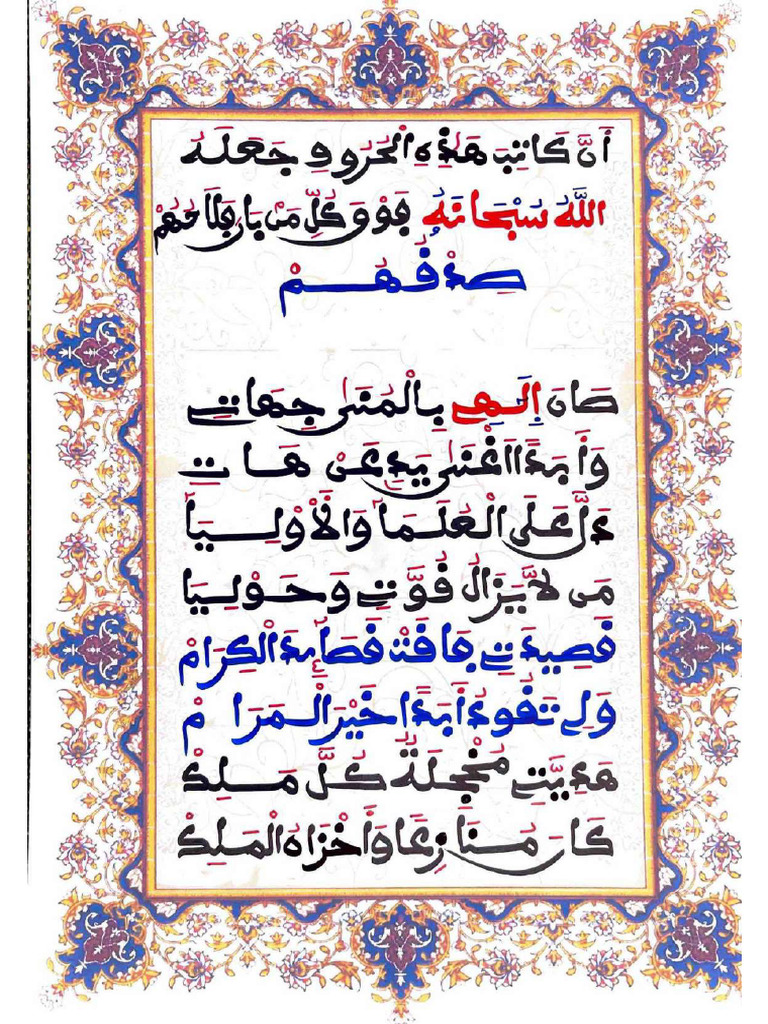 أَنَّ كَاتِبَ هَٰذِهِ الْحُرُوفِ جَعَلَهُ
اللَّهُ سُبْحَانَهُ فَوْقَ كُلِّ مَنْ
صِدْقُهُمْ
صَانَ إِلَٰهِي بِالْمُنَىٰ جِهَاتِي
وَأَبَدًا اَغْنَىٰ يَدِي عَنْ هَاتِ
دَلَّ عَلَى الْعُلَمَا وَالْأَوْلِيَا
مَن لَّا يَزَالُ قُوَّتِي وَحَوْلِيَا
قَصِيدَتِي فَاقَتْ قَصَائِدَ الْكِرَامْ
وَلِي تَقُودُ أَبَدًا خَيْرَ الْمَرَامْ
هَدِيَّتِي مُخْجِلَةٌ كُلَّ مَلِكْ
كَانَ مُنَازِعًا وَأَخْزَاهُ الْمَلِكْ